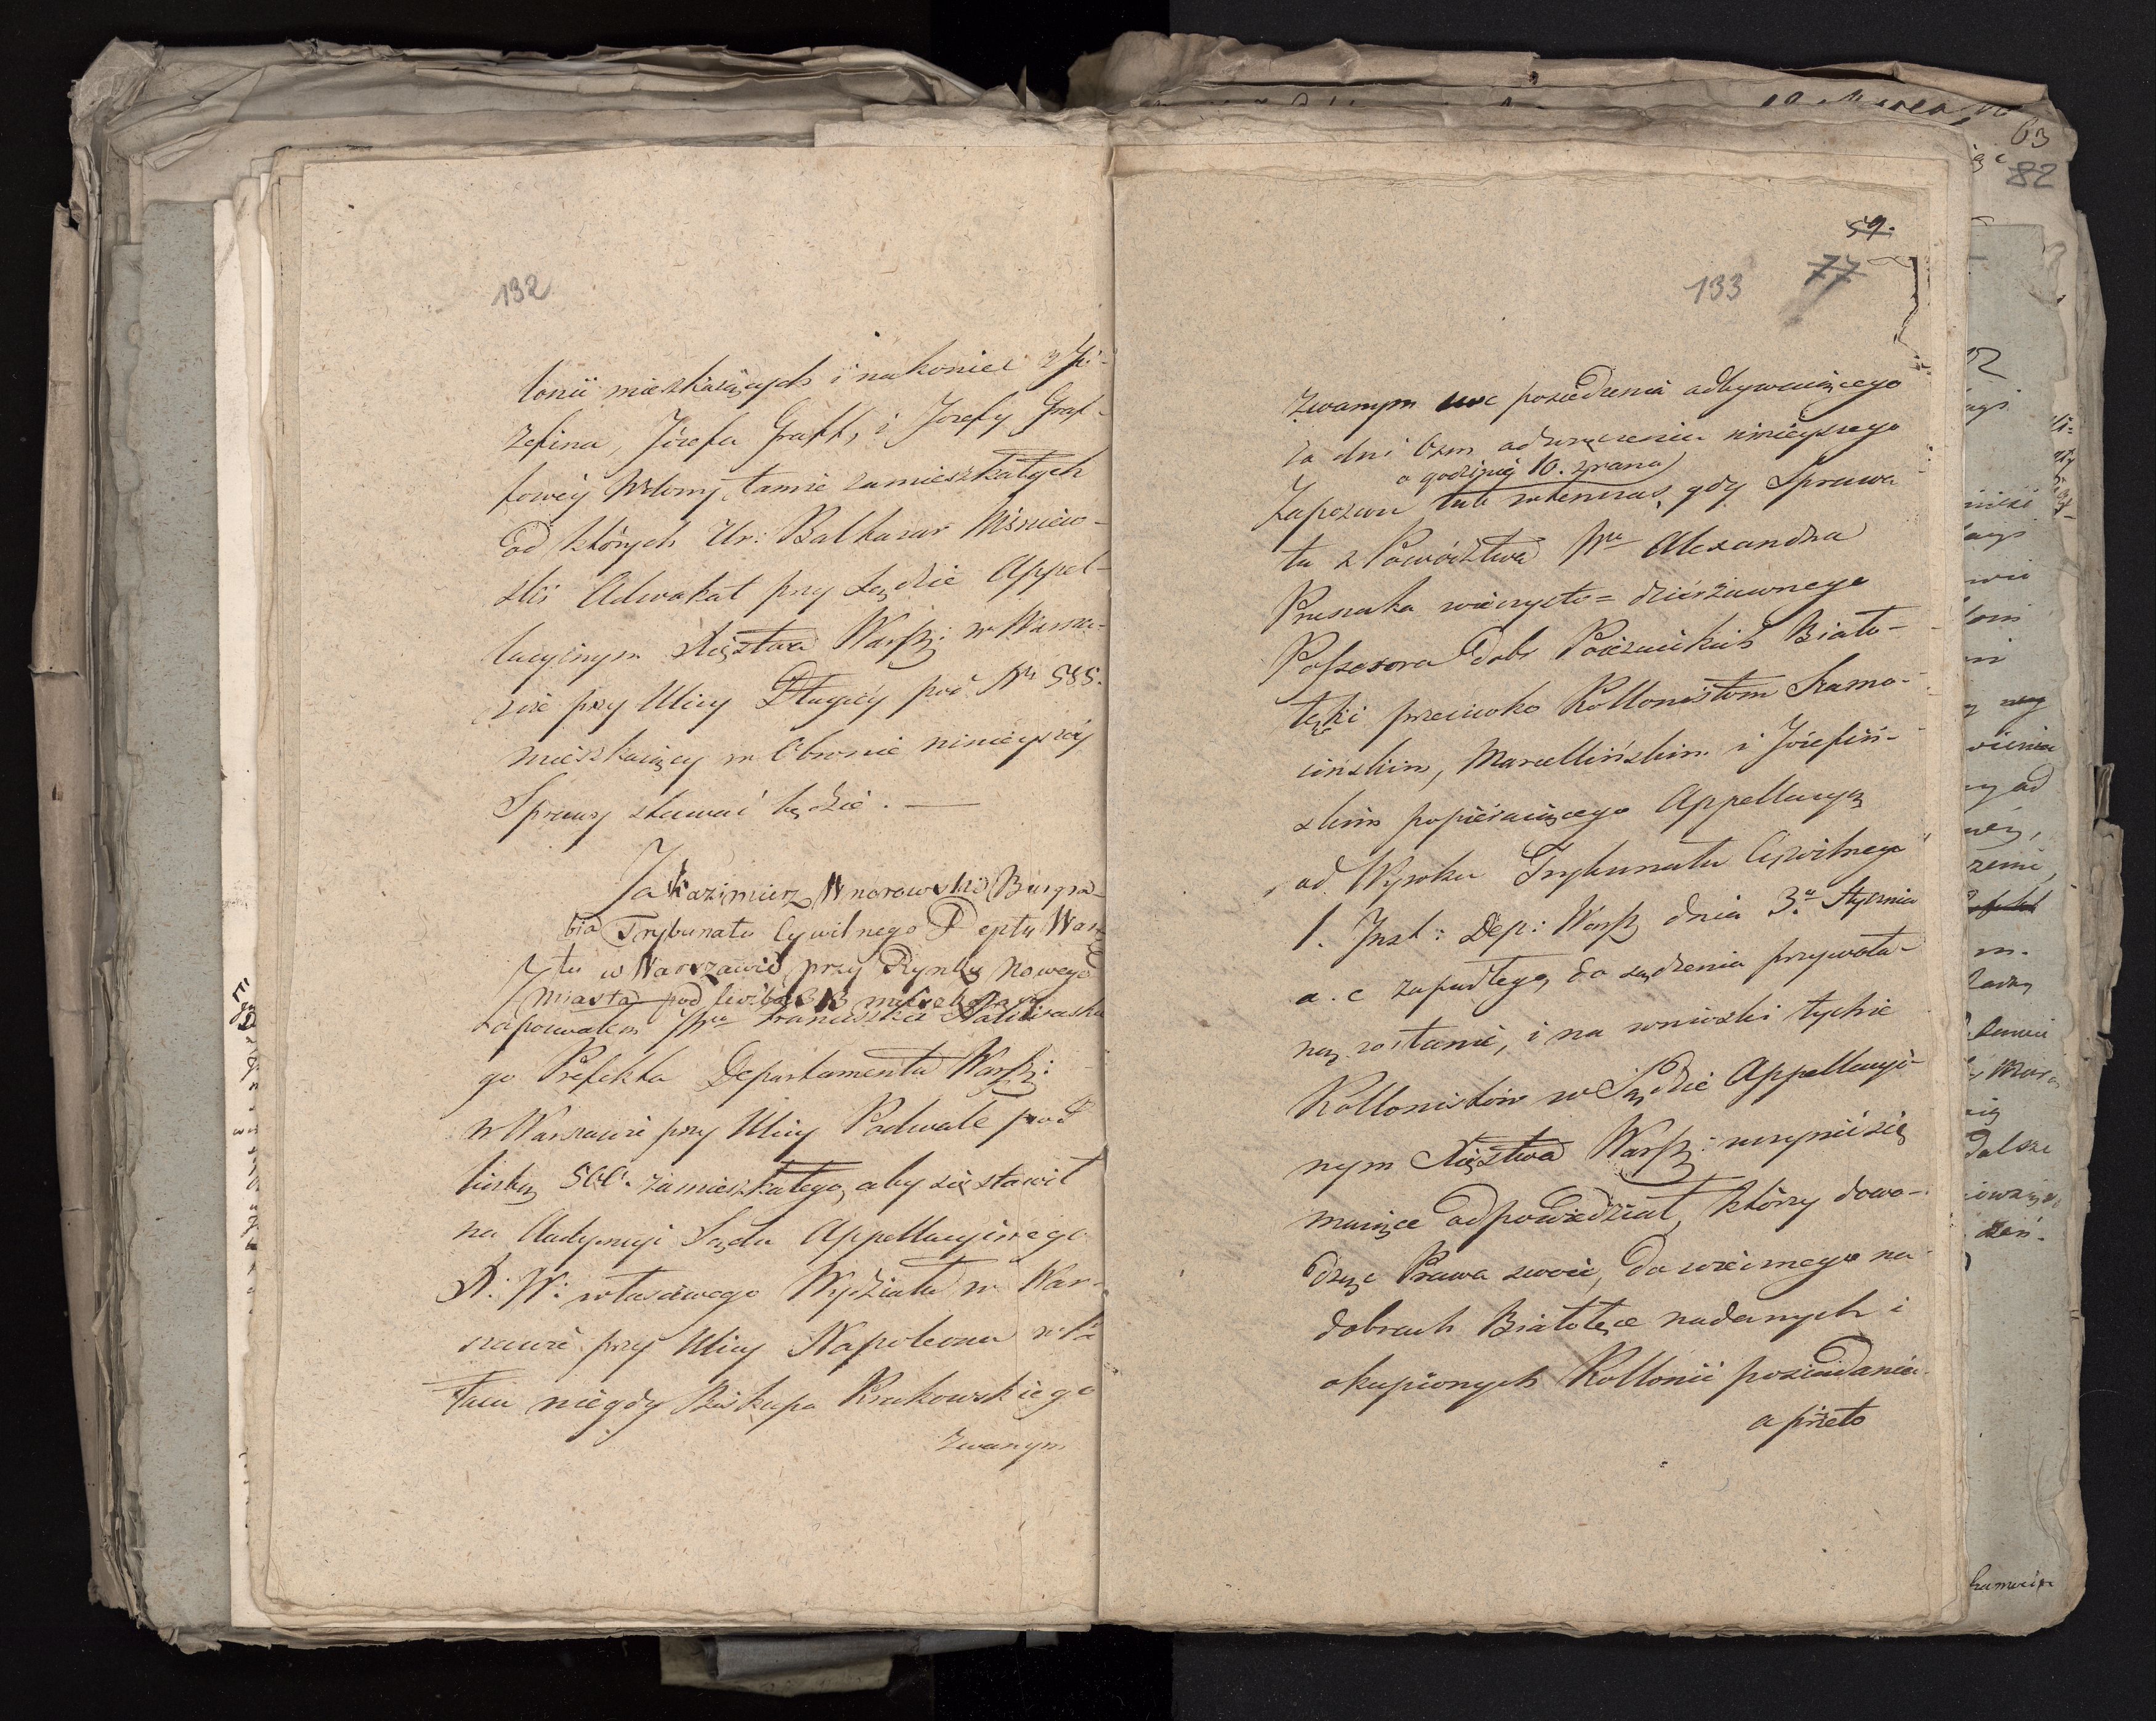 132
lonii mieszkaiących i nakoniec z Jó-
zefina, Józefa Graff, i Jozefy Graf-
fowéy Wdowy, tamże zamieszkałych
od których Ur: Balthazar Wiśniew-
ski Adwokat przy Sądzie Appel-
lacyinym Xięztwa Warsz: w Warsza-
wie przy Ulicy Długiéy pod Nr 585.
mieszkaiący w Obronie ninieyszéy
Sprawy stawać będzie. —
Ja Kazimierz Wnorowski Burgra-
bia Trybunału Cywilnego Deptu Warsz
tu w Warszawie przy Rynku Nowego
Miasta pod liczbą 313
Zapozwałem JWo Franciszka Nakwaskie
go Prefekta Departamentu Warsz:
w Warszawie przy Ulicy Podwale pod
liczbą 500. zamieszkałego, aby się stawił
na Audyencyi Sądu Appellacyinego
X: W: właściwego Wydziału w War-
szawie przy Ulicy Napoleona w Pa
łacu niegdy Biskupa Krakowskiego
zwanym
59.
133 77
zwanym swe posiedzenia odbywaiącego
za dni Osm od wręczenia ninieyszego
o godzinie 10. zrana
Zapozwu lub wtenczas, gdy Sprawa
ta z Powództwa Wo Alexandra
Prusaka wieczysto= dzierżawnego
Possessora dobr Poiezuickich Biało-
łęki przeciwko Kollonistom Szamo-
cińskim, Marcellińskim i Józefiń-
skim popieraiącego Appellacyą
od Wyroku Trybunału Cywilnego
1. Inst: Dep: Warsz dnia 3o Stycznia
a. c zapadłego, do sądzenia przywoła-
ną zostanie, i na wnioski tychże
Kollonistów w Sądzie Appellacyi-
nym Xięztwa Warsz: uczynić się
maiące odpowiedział, którzy dowo-
dząc Prawa swoie, do wiecznego na
dobrach Białołęce nadanych i
okupionych Kollonii posiadania
a przeto
63
82